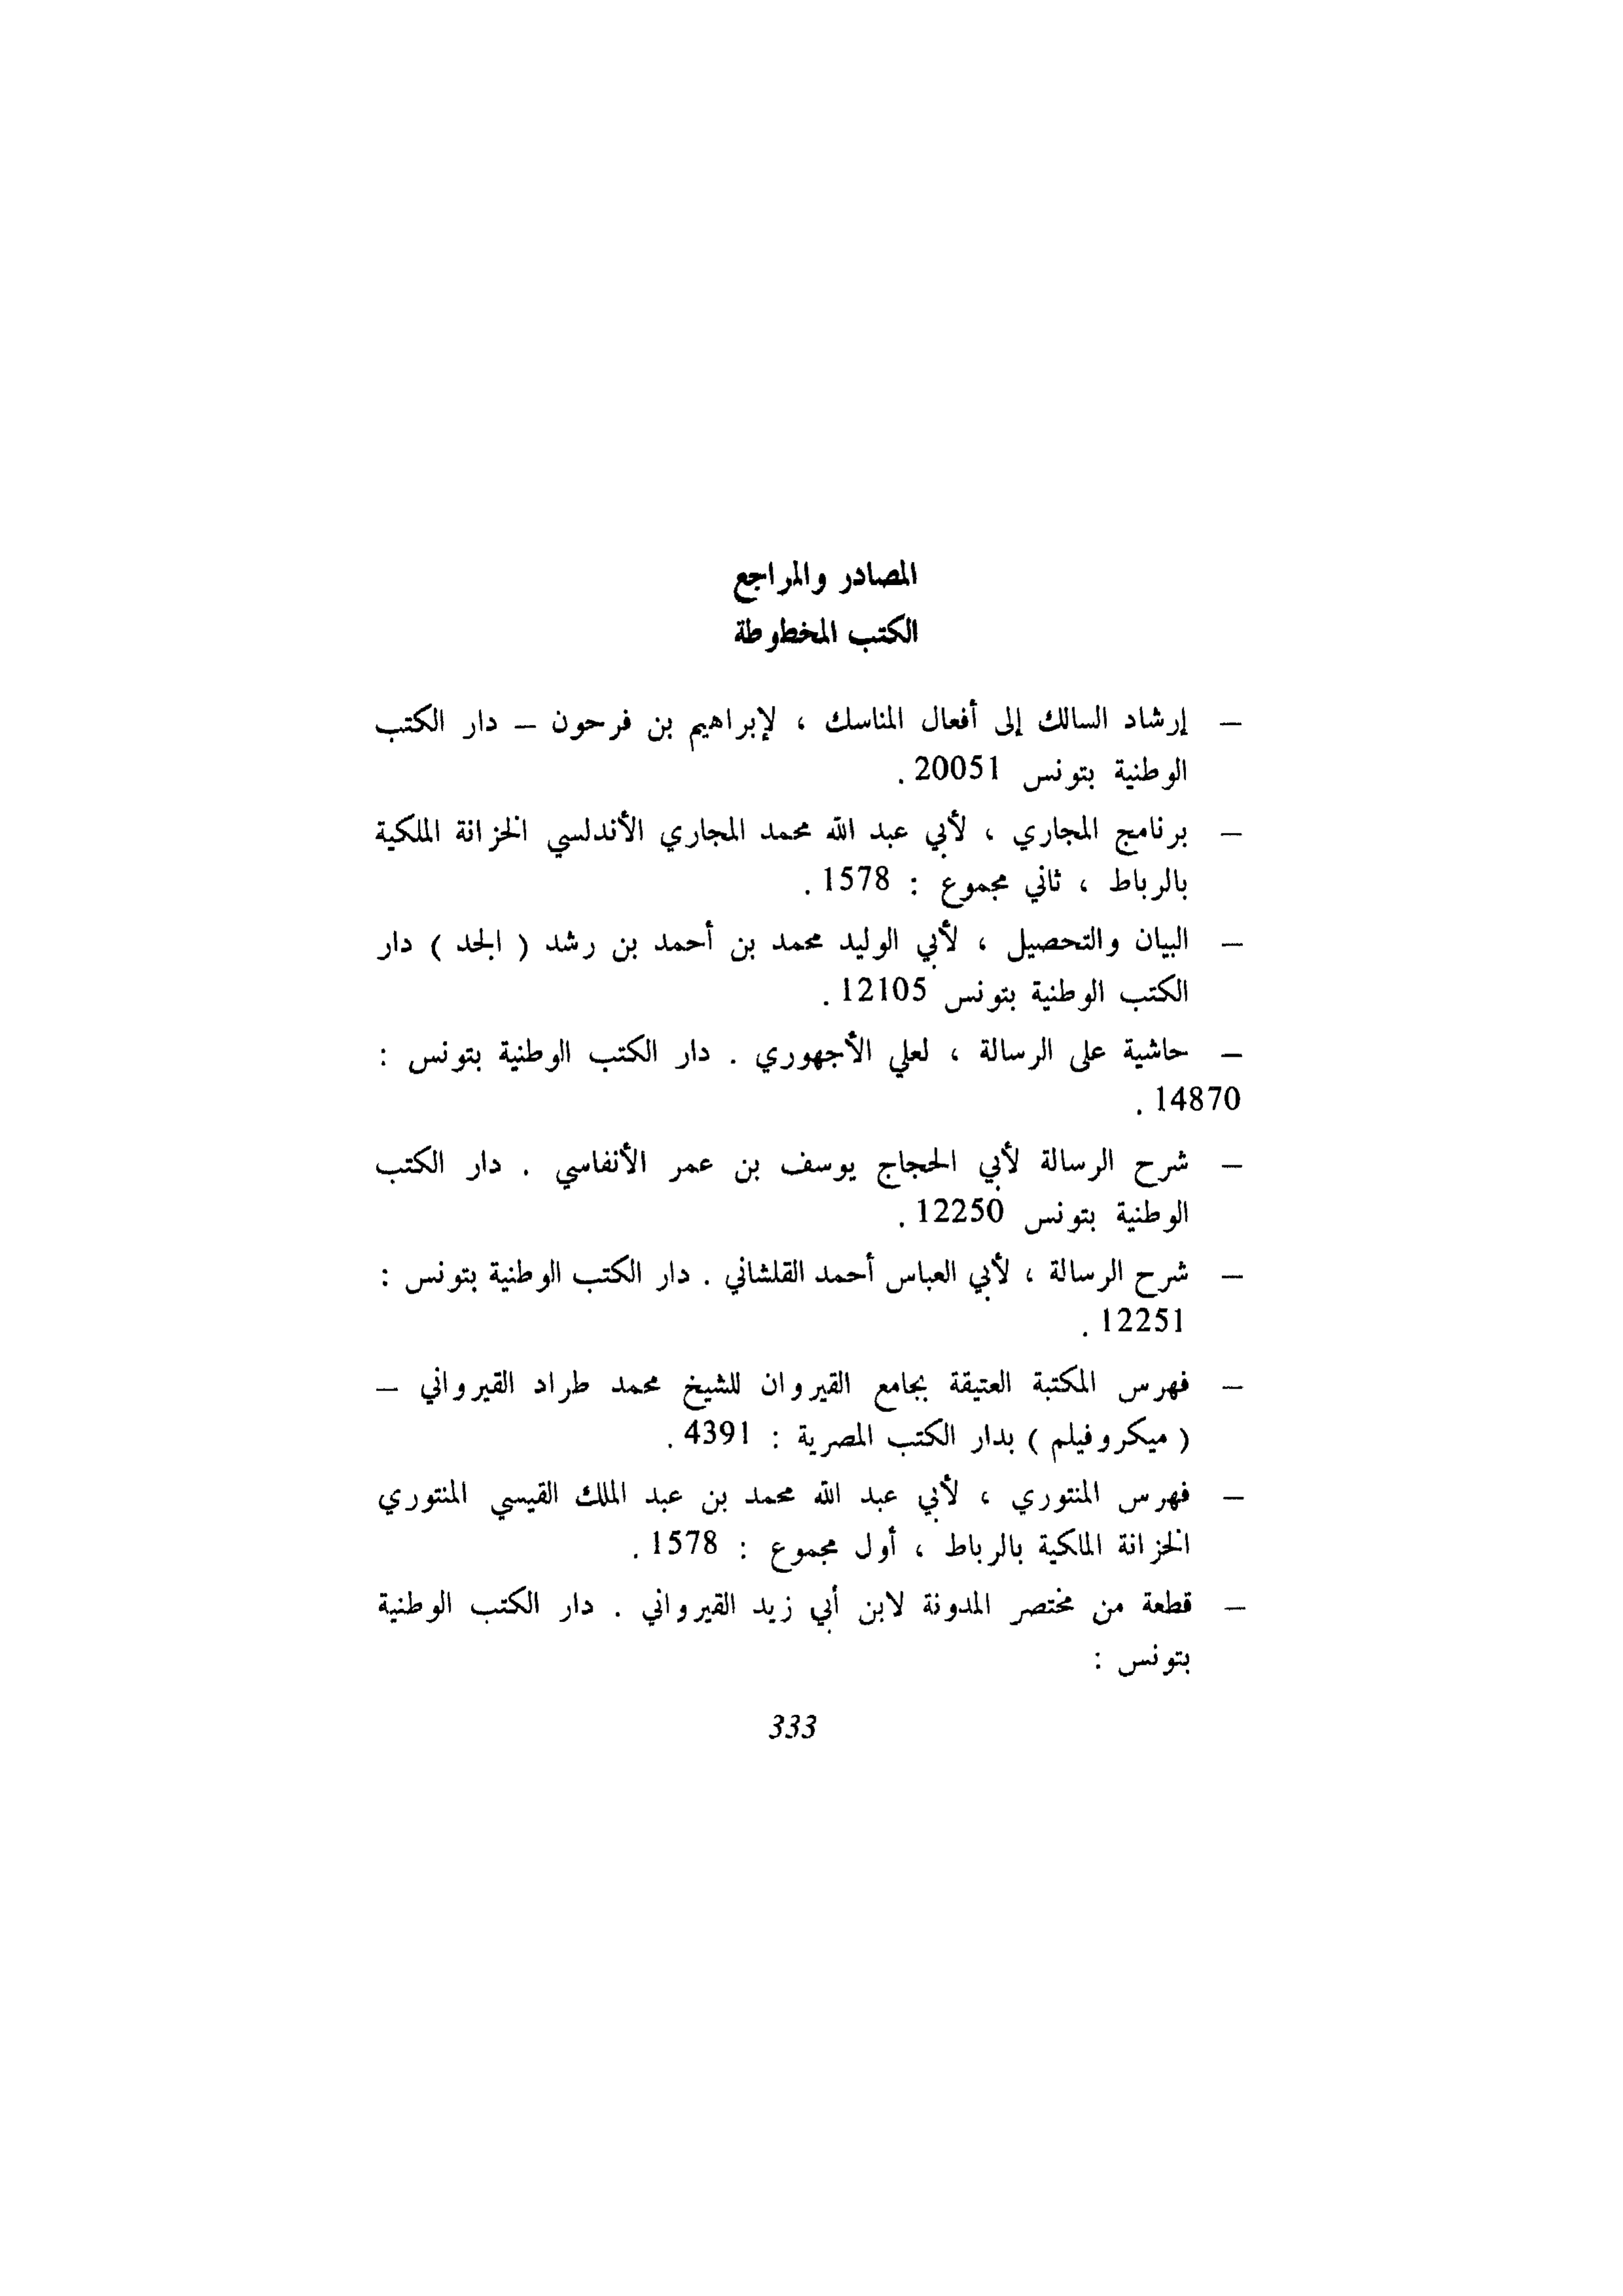 المصادر والمراجع
الكتب المخطوطة
– إرشاد السالك إلى أفعال المناسك ، لإبراهيم بن فرحون – دار الكتب
الوطنية بتونس 20051 .
– برنامج المجاري ، لأبي عبد الله محمد المجاري الأندلسي الخزانة الملكية
بالرباط ، ثاني مجموع : 1578 .
– البيان والتحصيل ، لأبي الوليد محمد بن أحمد بن رشد ( الجد ) دار
الكتب الوطنية بتونس 12105 .
– حاشية على الرسالة ، لعلي الأجهوري . دار الكتب الوطنية بتونس :
14870 .
– شرح الرسالة لأبي الحجاج يوسف بن عمر الأنفاسي . دار الكتب
الوطنية بتونس 12250 .
– شرح الرسالة ، لأبي العباس أحمد القلشاني . دار الكتب الوطنية بتونس :
12251 .
– فهرس المكتبة العتيقة بجامع القيروان للشيخ محمد طراد القيرواني –
( ميكروفيلم ) بدار الكتب المصرية : 4391 .
– فهرس المنتوري ، لأبي عبد الله محمد بن عبد الملك القيسي المنتوري
الخزانة الملكية بالرباط ، أول مجموع : 1578 .
– قطعة من مختصر المدونة لابن أبي زيد القيرواني . دار الكتب الوطنية
بتونس :
333